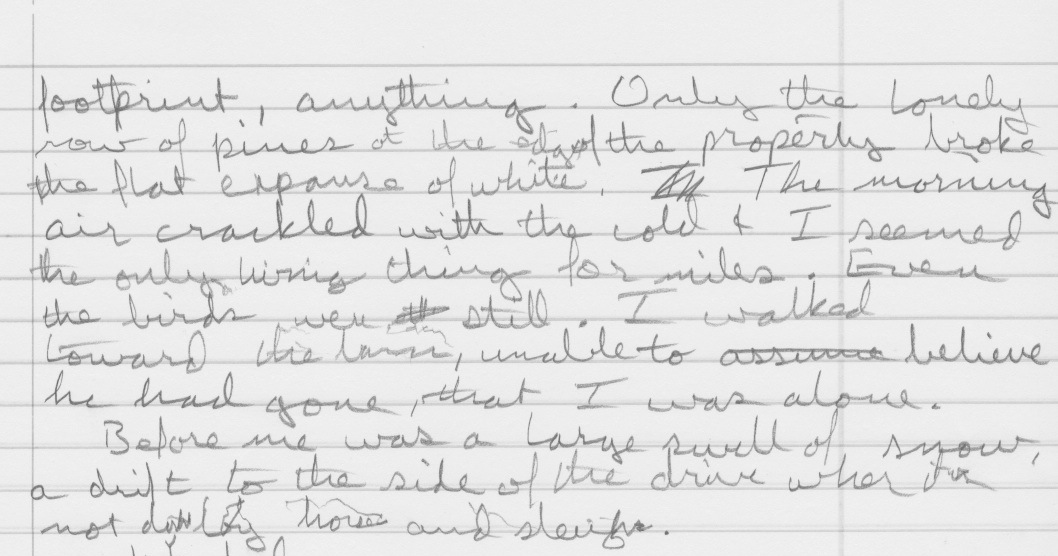 footprint, anything. Only the lonely
row of pines at the edge of the property broke
the flat expanse of white. The morning
air crackled with the cold & I seemed
the only living thing for miles. Even
the birds were still. I walked
toward the barn, unable to assume believe
he had gone, that I was alone.
Before me was a large swell of snow,
a drift to the side of the drive
not by horse and sleigh.